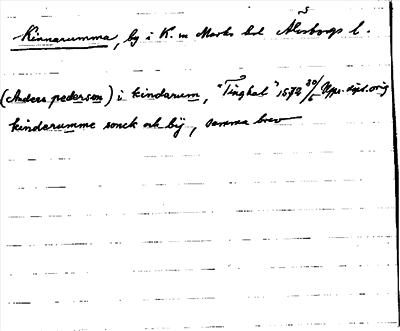 Kinnarumma, by i K. sn Marks hd Älvsborgs l.
(Anders pederson) i kindarum, "Tinghel" 1572 30/6 Upps. dipl. orig
kindarumme sonck och bÿ, samma brev